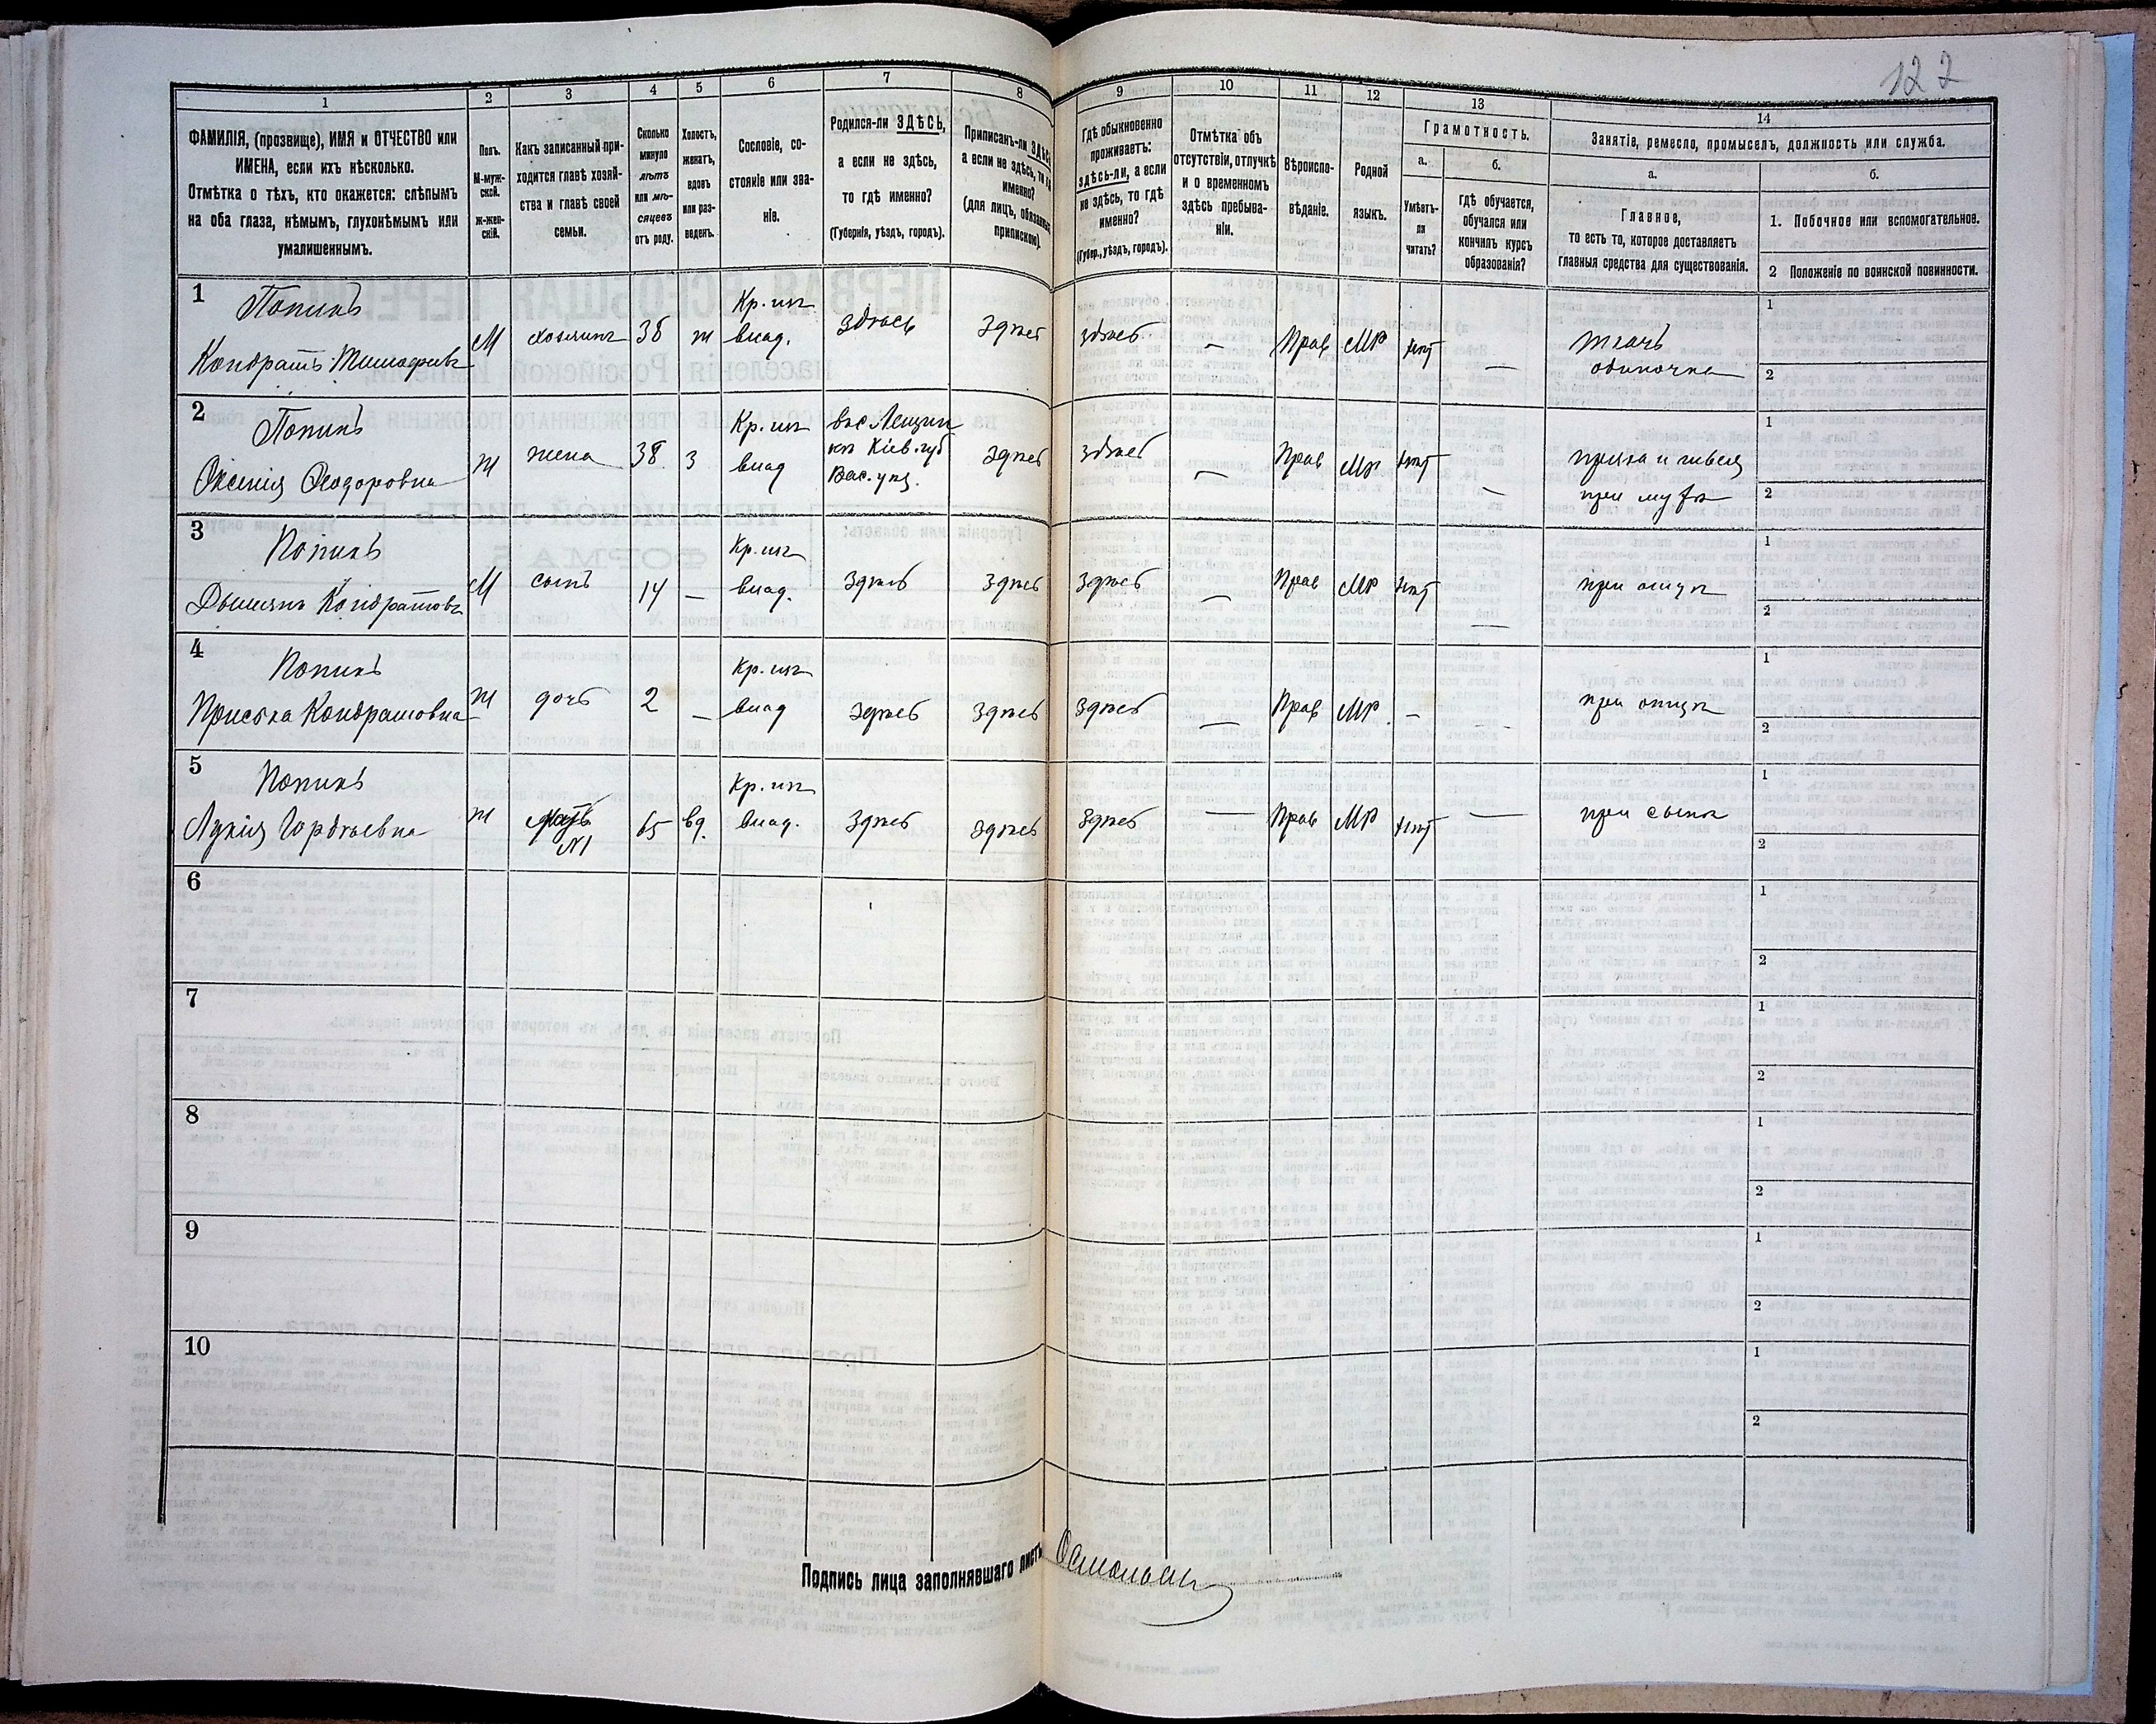 122
1
2
3
4
5
6
7
8
9
10
11
12
13
14
ФАМИЛІЯ, (прозвище), ИМЯ и ОТЧЕСТВО или
ИМЕНА, если ихъ нѣсколько.
Отмѣтка о тѣхъ, кто окажется: слѣпымъ
на оба глаза, нѣмымъ, глухонѣмымъ или
умалишеннымъ.
Полъ.
М-муж-
ской.
ж-жен-
скій.
Какъ записанный при-
ходится главѣ хозяй-
ства и главѣ своей
семьи.
Сколько
минуло
лѣтъ
или мѣ-
сяцевъ
отъ роду.
Холостъ,
женатъ,
вдовъ
или раз-
веденъ.
Сословіе, со-
стояніе или зва-
ніе.
Родился-ли ЗДѢСЬ,
а если не здѣсь,
то гдѣ именно?
(Губернія, уѣздъ, городъ).
Приписанъ-ли ЗДѢСЬ
а если не здѣсь, то гдѣ
именно?
(для лицъ, обязанныхъ
припискою).
Гдѣ обыкновенно
проживаетъ:
здѣсь-ли, а если
не здѣсь, то гдѣ
именно?
(Губер., уѣздъ, городъ).
Отмѣтка объ
отсутствіи, отлучкѣ
и о временномъ
здѣсь пребыва-
ніи.
Вѣроиспо-
вѣданіе.
Родной
языкъ.
Грамотность.
а.
б.
Умѣетъ-
ли
читать?
Гдѣ обучается,
обучался или
кончилъ курсъ
образованія?
Занятіе, ремесло, промыселъ, должность или служба.
а.
б.
Главное,
то есть то, которое доставляетъ
главныя средства для существованія.
1. Побочное или вспомогательное.
2 Положеніе по воинской повинности.
1
Попикъ
Кр. изъ
Кондратъ
М хозяинъ 38 ж влад. здѣсь здѣсь здѣсь — Прав МР нѣт — ткачъ
одиночка
1
2
2
Попикъ
Кр. изъ
Оксенія Ѳеодоровна
ж жена 38 3 влад
Кіев. губ
Вас. уѣз.
здѣсь здѣсь — Прав МР нѣт — пряха и швея
при мужѣ
1
2
3
Попикъ
Кр. изъ
Кондратовъ
М сынъ 14 — влад. здѣсь здѣсь здѣсь — Прав МР нѣт — при отцѣ
1
2
4
Попикъ
Кр. изъ
Приська Кондратовна
ж дочь 2 — влад здѣсь здѣсь здѣсь — Прав МР — — при отцѣ
1
2
5
Попикъ
Кр. изъ
Лукія Гордѣевна
ж мать 65 вд. влад. здѣсь здѣсь здѣсь — Прав МР нѣт — при сынѣ
N1
1
2
6
1
2
7
1
2
8
1
2
9
1
2
10
1
2
Подпись лица заполнявшаго листъ